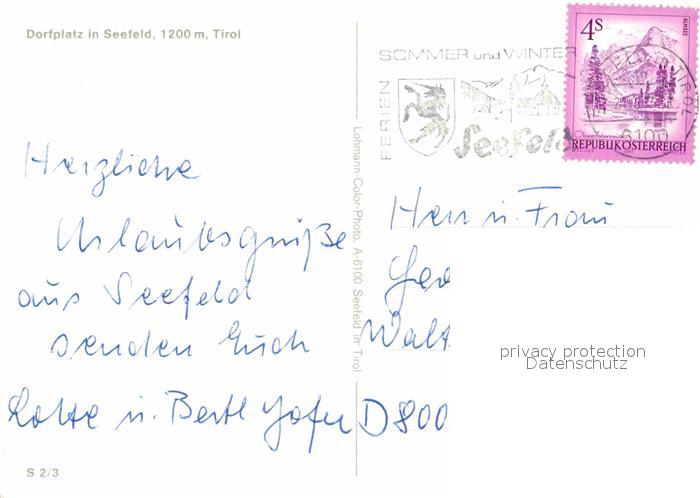 Dorfplatz in Seefeld, 1200 m, Tirol
SOMMER und WINTER
FERIEN
Seefeld
4S
ALMSEE
REPUBLIK ÖSTERREICH
TIROL
6100
Herzliche
Urlaubsgrüße
aus Seefeld
senden Euch
Lotte u. Bertl
Lohmann-Color-Photo, A-6100 Seefeld in Tirol
Herr u. Frau
Geo
Walt
D 800
privacy protection
Datenschutz
S 2/3